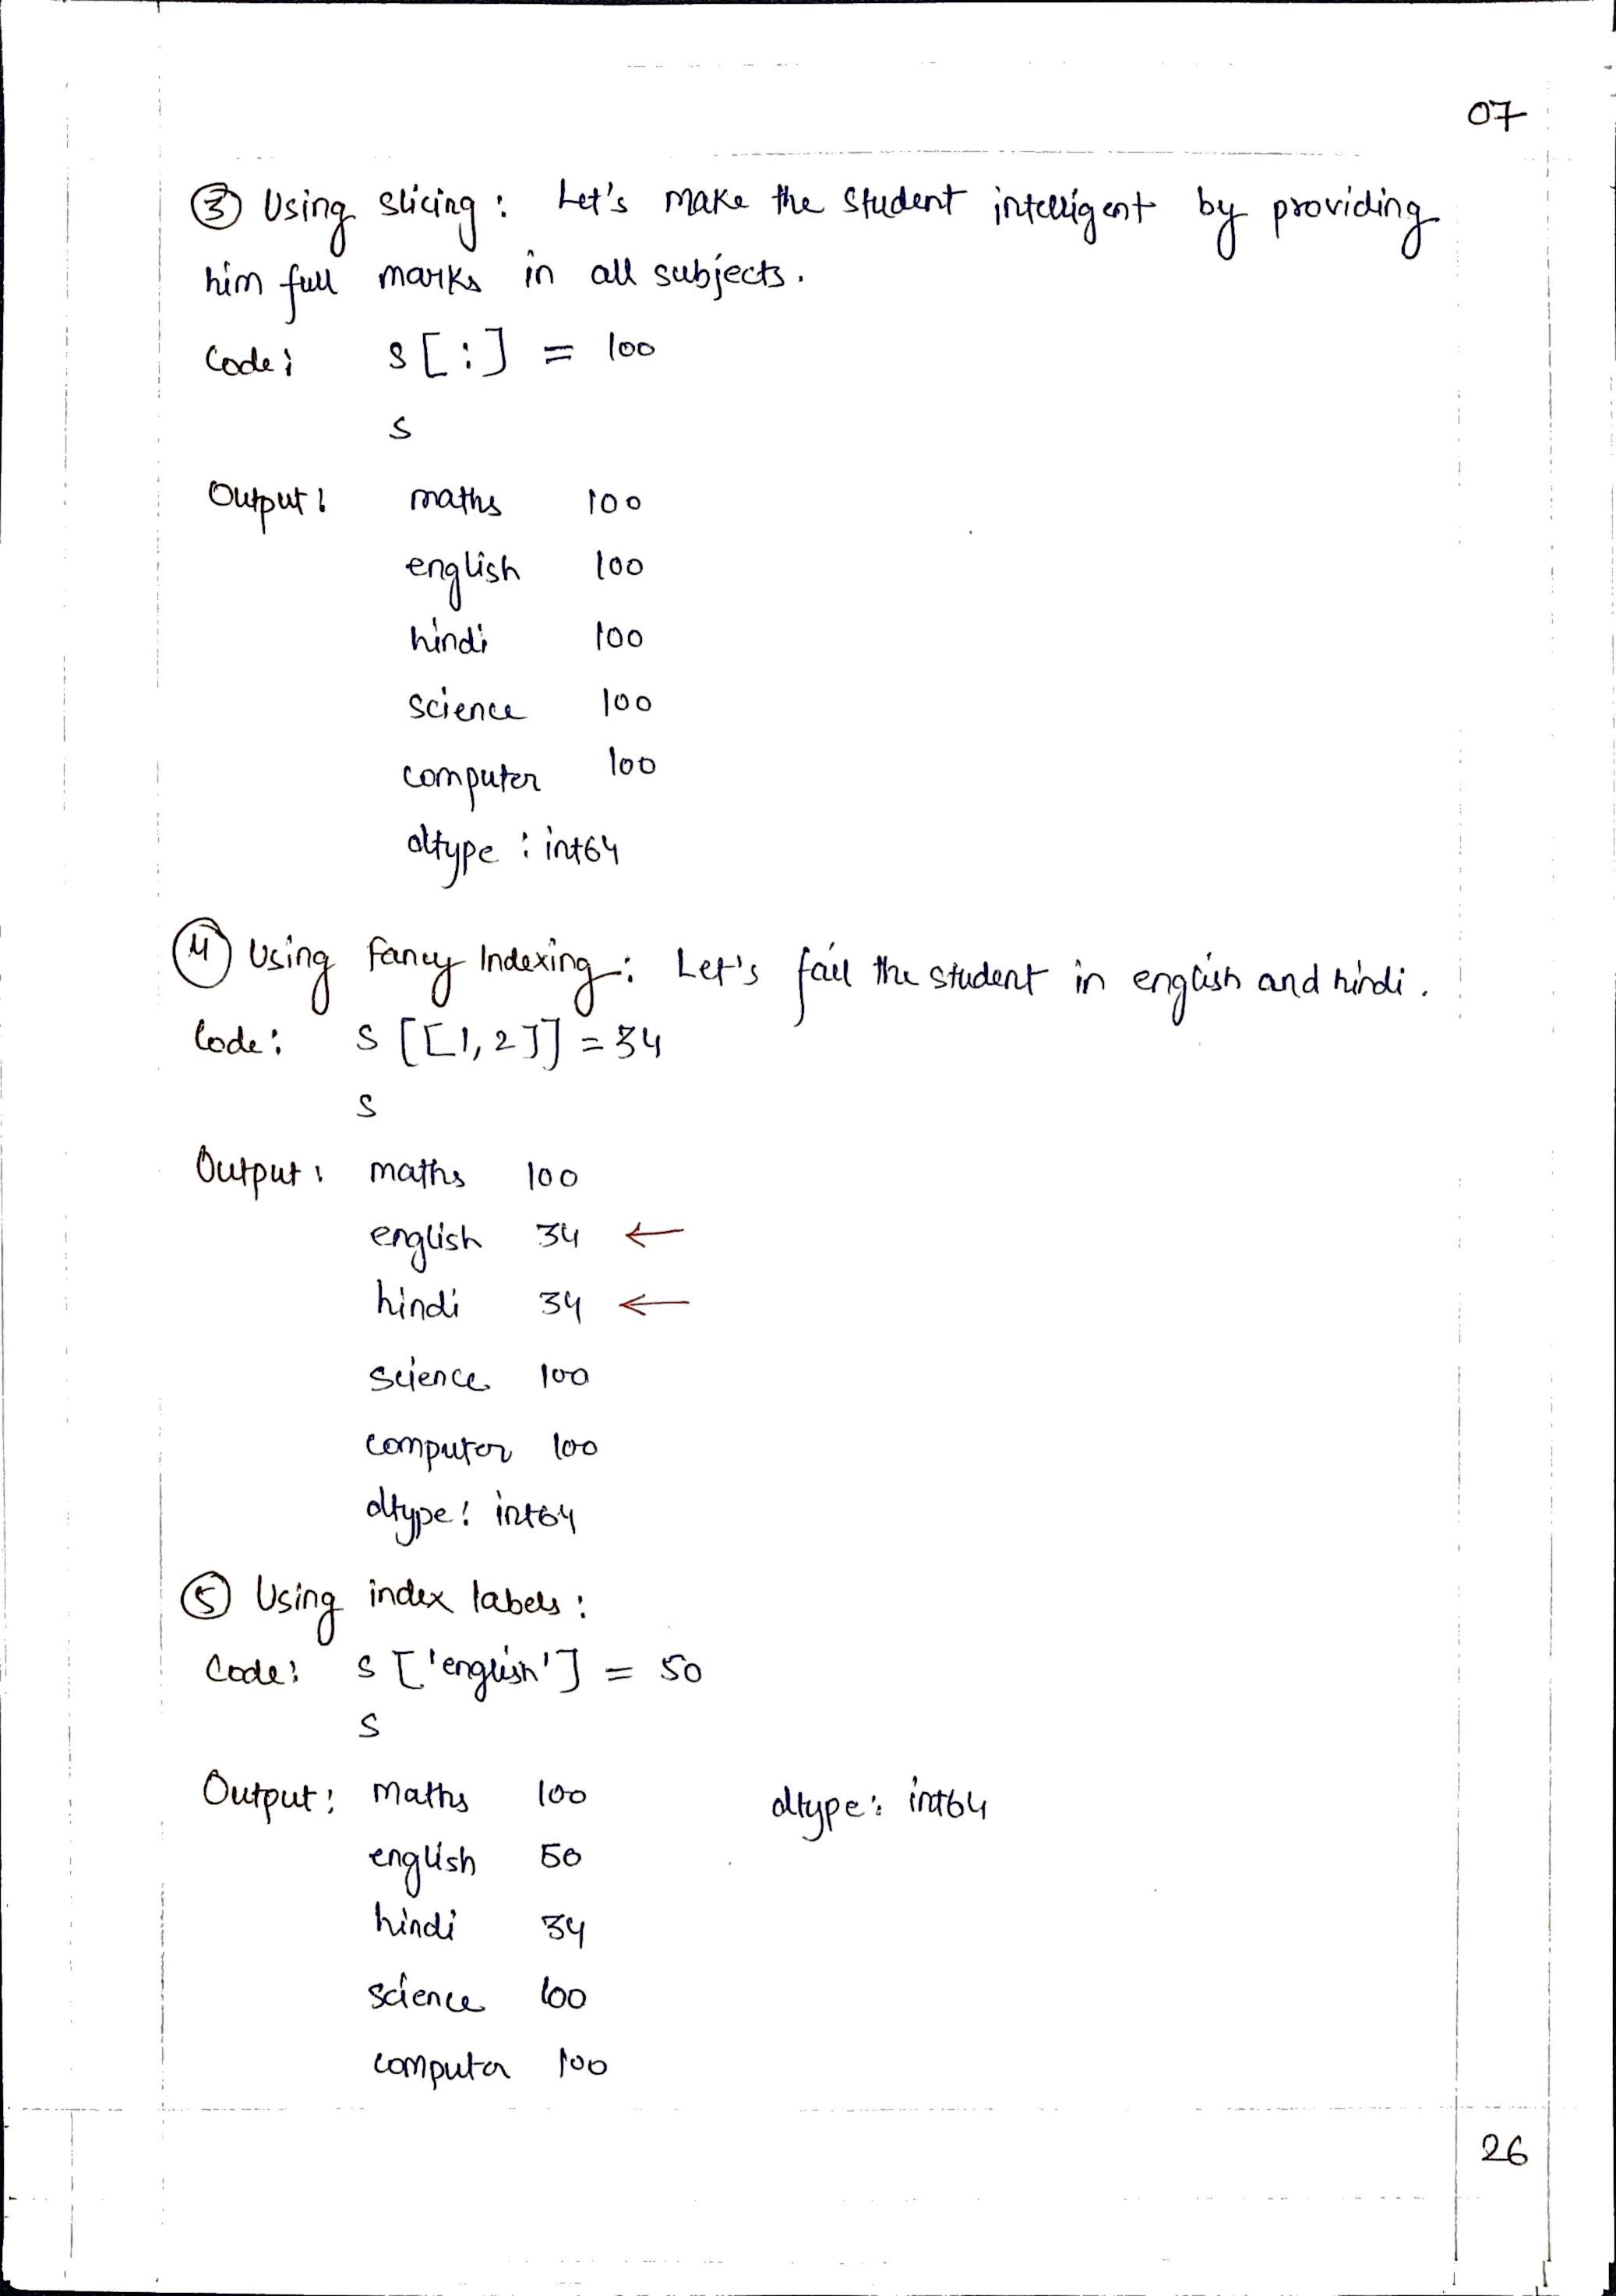 07
③ Using slicing: Let's make the student intelligent by providing
him full marks in all subjects.
Code: s[:] = 100
s
Output: maths 100
english 100
hindi 100
science 100
computer 100
dtype: int64
④ Using Fancy Indexing: Let's fail the student in english and hindi.
Code: s[[1,2]] = 34
s
Output: maths 100
english 34 ←
hindi 34 ←
science 100
computer 100
dtype: int64
⑤ Using index labels:
Code: s['english'] = 50
s
Output: maths 100 dtype: int64
english 50
hindi 34
science 100
computer 100
26